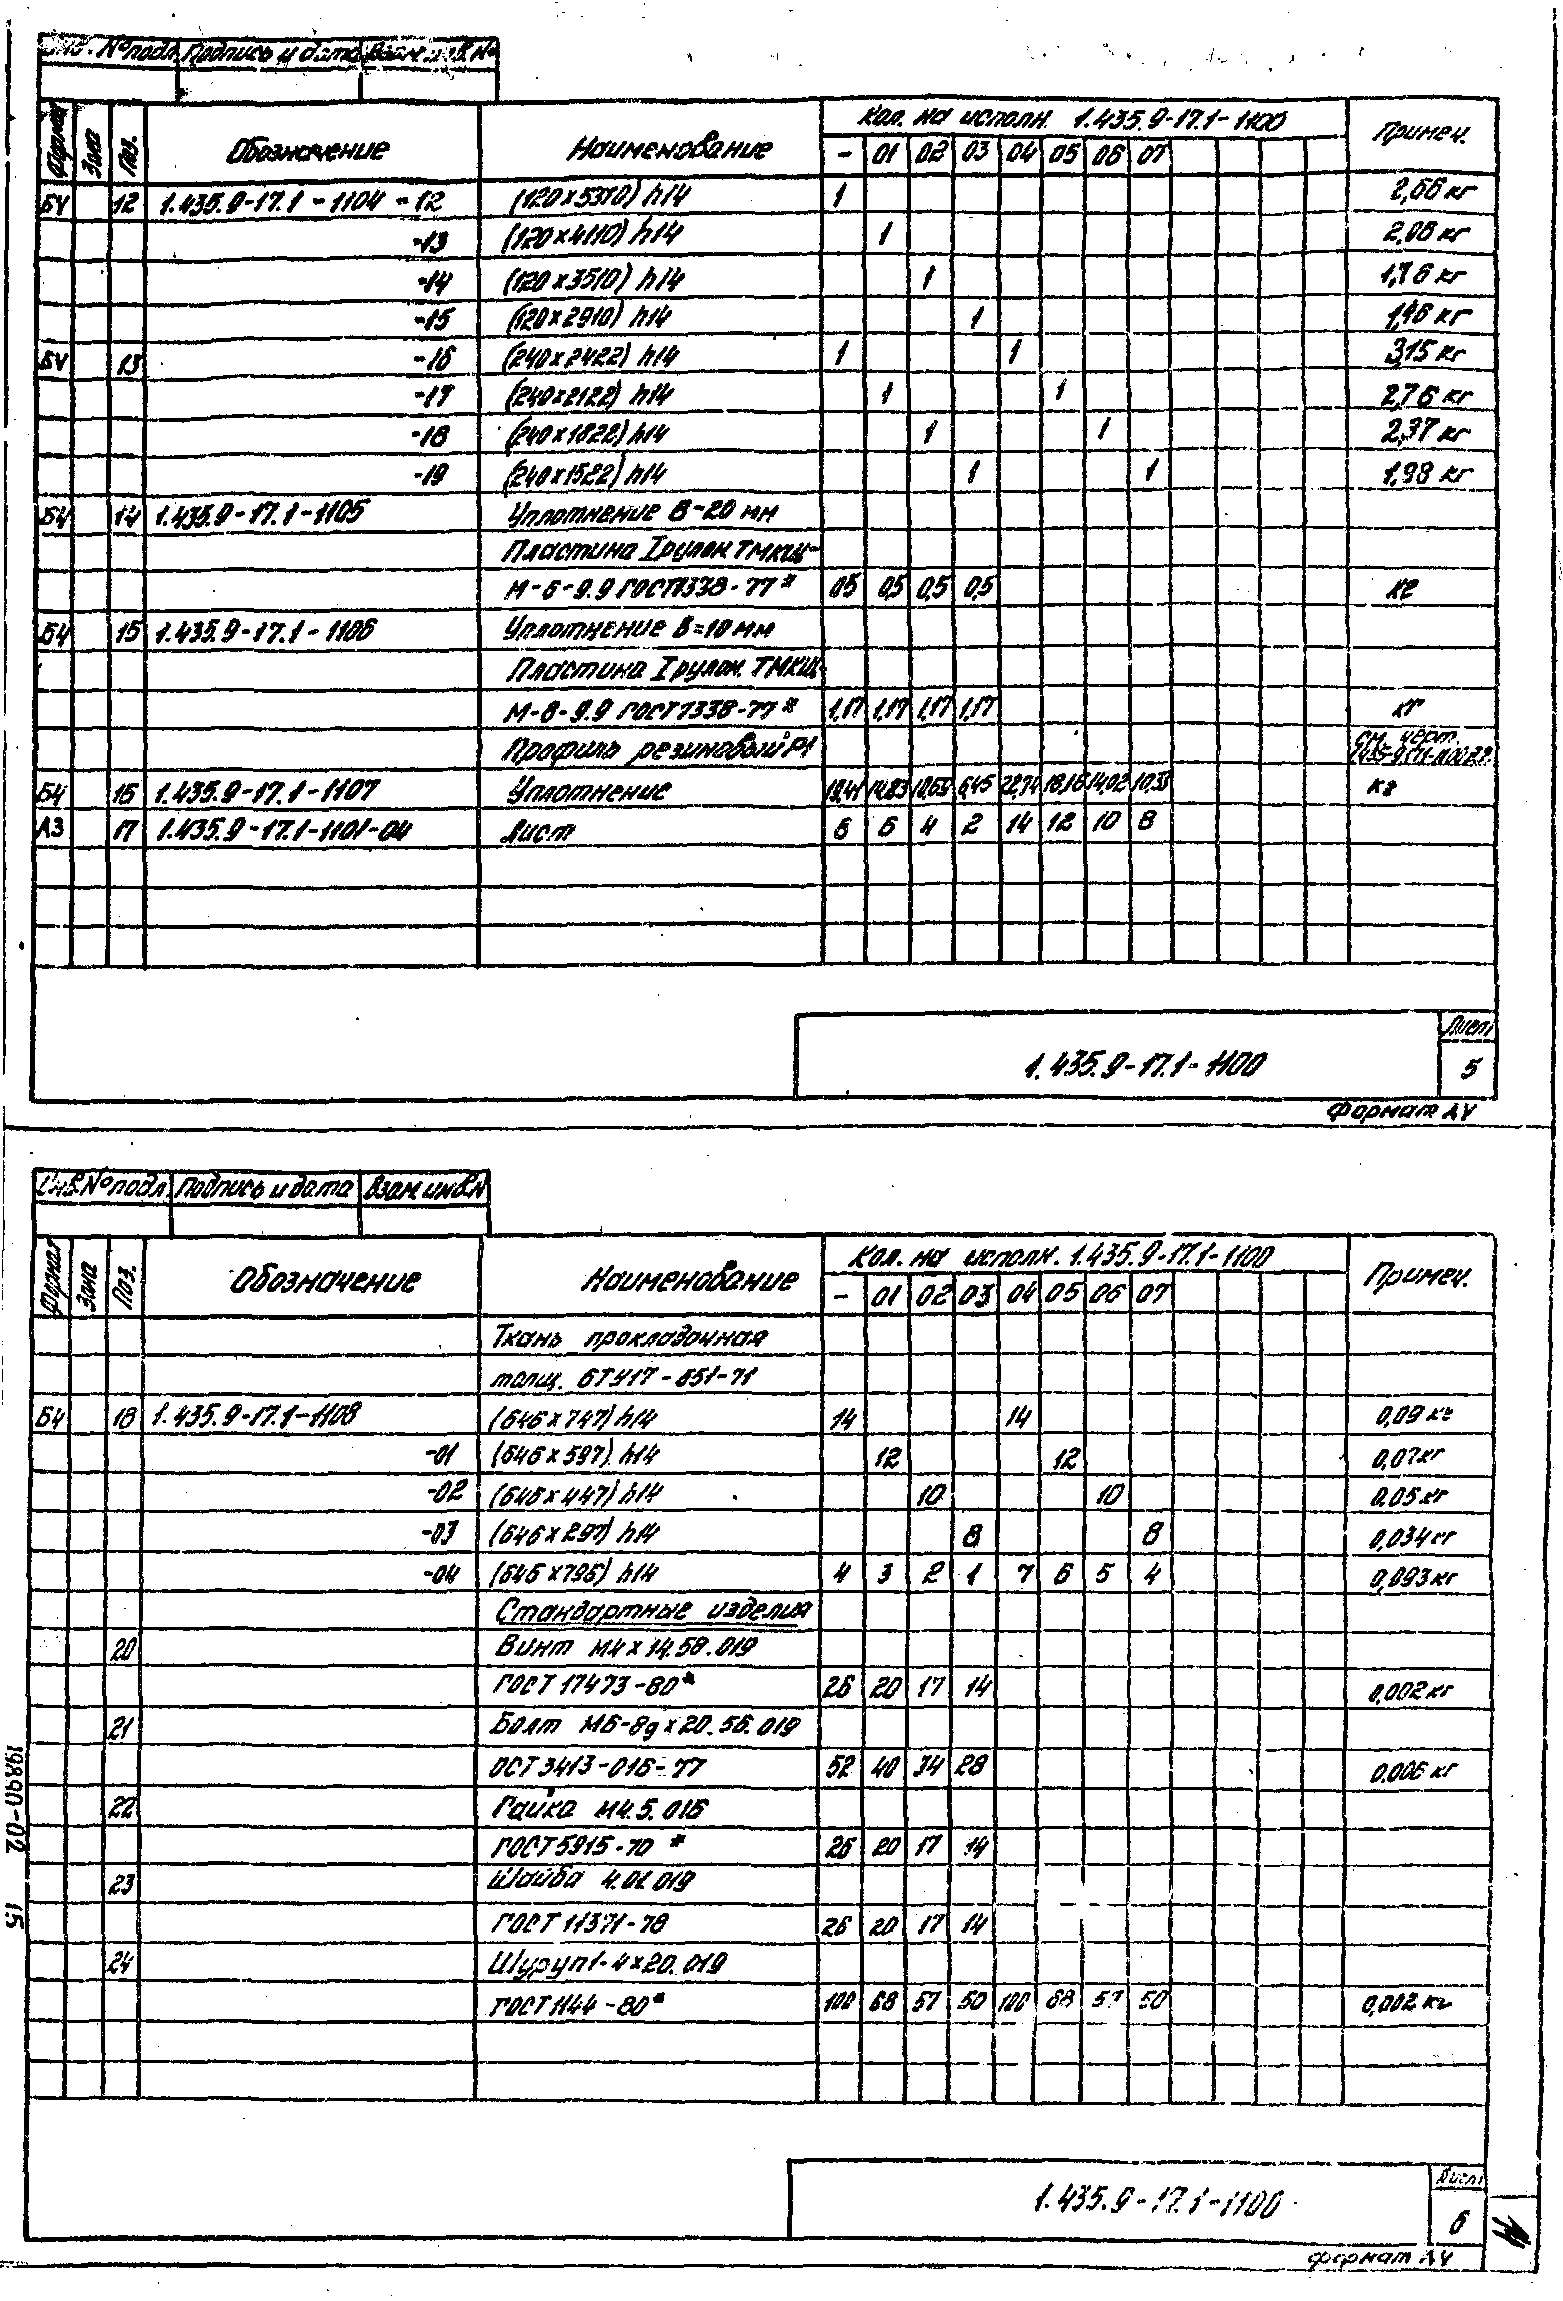 Инв. №подл. Подпись и дата Взам.инв.№
Формат Зона Поз. Обозначение Наименование Кол. на исполн. 1.435.9-17.1-1100 Примеч.
- 01 02 03 04 05 06 07
БЧ 12 1.435.9-17.1-1104 -12 (120х5310) h14 1 2,66 кг
-13 (120х4110) h14 1 2,08 кг
-14 (120х3510) h14 1 1,76 кг
-15 (120х2910) h14 1 1,46 кг
БЧ 13 -16 (240х2422) h14 1 1 3,15 кг
-17 (240х2122) h14 1 1 2,76 кг
-18 (240х1822) h14 1 1 2,37 кг
-19 (240х1522) h14 1 1 1,98 кг
БЧ 14 1.435.9-17.1-1105 Уплотнение В-20 мм
Пластина I рулон ТМКЩ-
М-6-9.9 ГОСТ 7338-77* 0,5 0,5 0,5 0,5 кг
БЧ 15 1.435.9-17.1-1106 Уплотнение В=10 мм
Пластина I рулон. ТМКЩ-
М-8-9.9 ГОСТ 7338-77* 1,17 1,17 1,17 1,17 кг
Профиль резиновый Р1 см. черт.
БЧ 16 1.435.9-17.1-1107 Уплотнение 14,83 6,45 22,74 18,16 14,02 кг
А3 17 1.435.9-17.1-1101-04 Лист 4 2 14 12 10 8
1.435.9-17.1-1100 Лист 5
Формат А4
Инв.№подл. Подпись и дата Взам.инв.№
Формат Зона Поз. Обозначение Наименование Кол. на исполн. 1.435.9-17.1-1100 Примеч.
- 01 02 03 04 05 06 07
Ткань прокладочная
толщ. 6ТУ17-651-71
БЧ 18 1.435.9-17.1-1108 (646х747) h14 14 14 0,09 кг
-01 (646х597) h14 12 12 0,07 кг
-02 (646х447) h14 10 10 0,05 кг
-03 (646х297) h14 8 8 0,034 кг
-04 (646х796) h14 4 3 2 1 7 6 5 4 0,093 кг
Стандартные изделия
20 Винт М4х14.58.019
ГОСТ 17473-80* 26 20 17 14 0,002 кг
21 Болт М6-8gх20.56.019
ОСТ 3413-016-77 52 40 34 28 0,006 кг
22 Гайка М4.5.016
ГОСТ 5915-70* 26 20 17 14
23 Шайба 4.01.019
ГОСТ 11371-78 26 20 17 14
24 Шуруп 1-4х20.019
ГОСТ 1144-80* 100 68 57 50 100 68 57 50 0,002 кг
19890-02 15
1.435.9-17.1-1100 Лист 6
формат А4